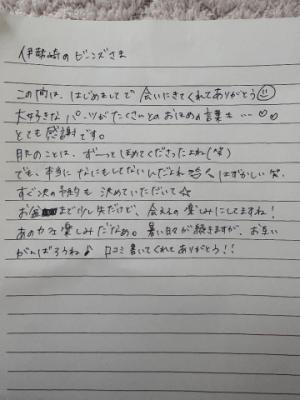 伊勢崎のビーンズさま
この間は、はじめましてで会いにきてくれてありがとう
大好きな パーツがたくさんとのおほめの言葉も…♡♡
とても感謝です。
のことは、ずーっとほめてくださったよね(笑)
でも、本当になにもしてない はずかしい笑、
すぐ次の予約も 決めていただいて☆
お まで少し先だけど、会えるの楽しみにしてますね!
あのカフェ楽しみだなぁ。暑い日々が続きますが、お互い
がんばろうね♪ 口コミ書いてくれてありがとう!!